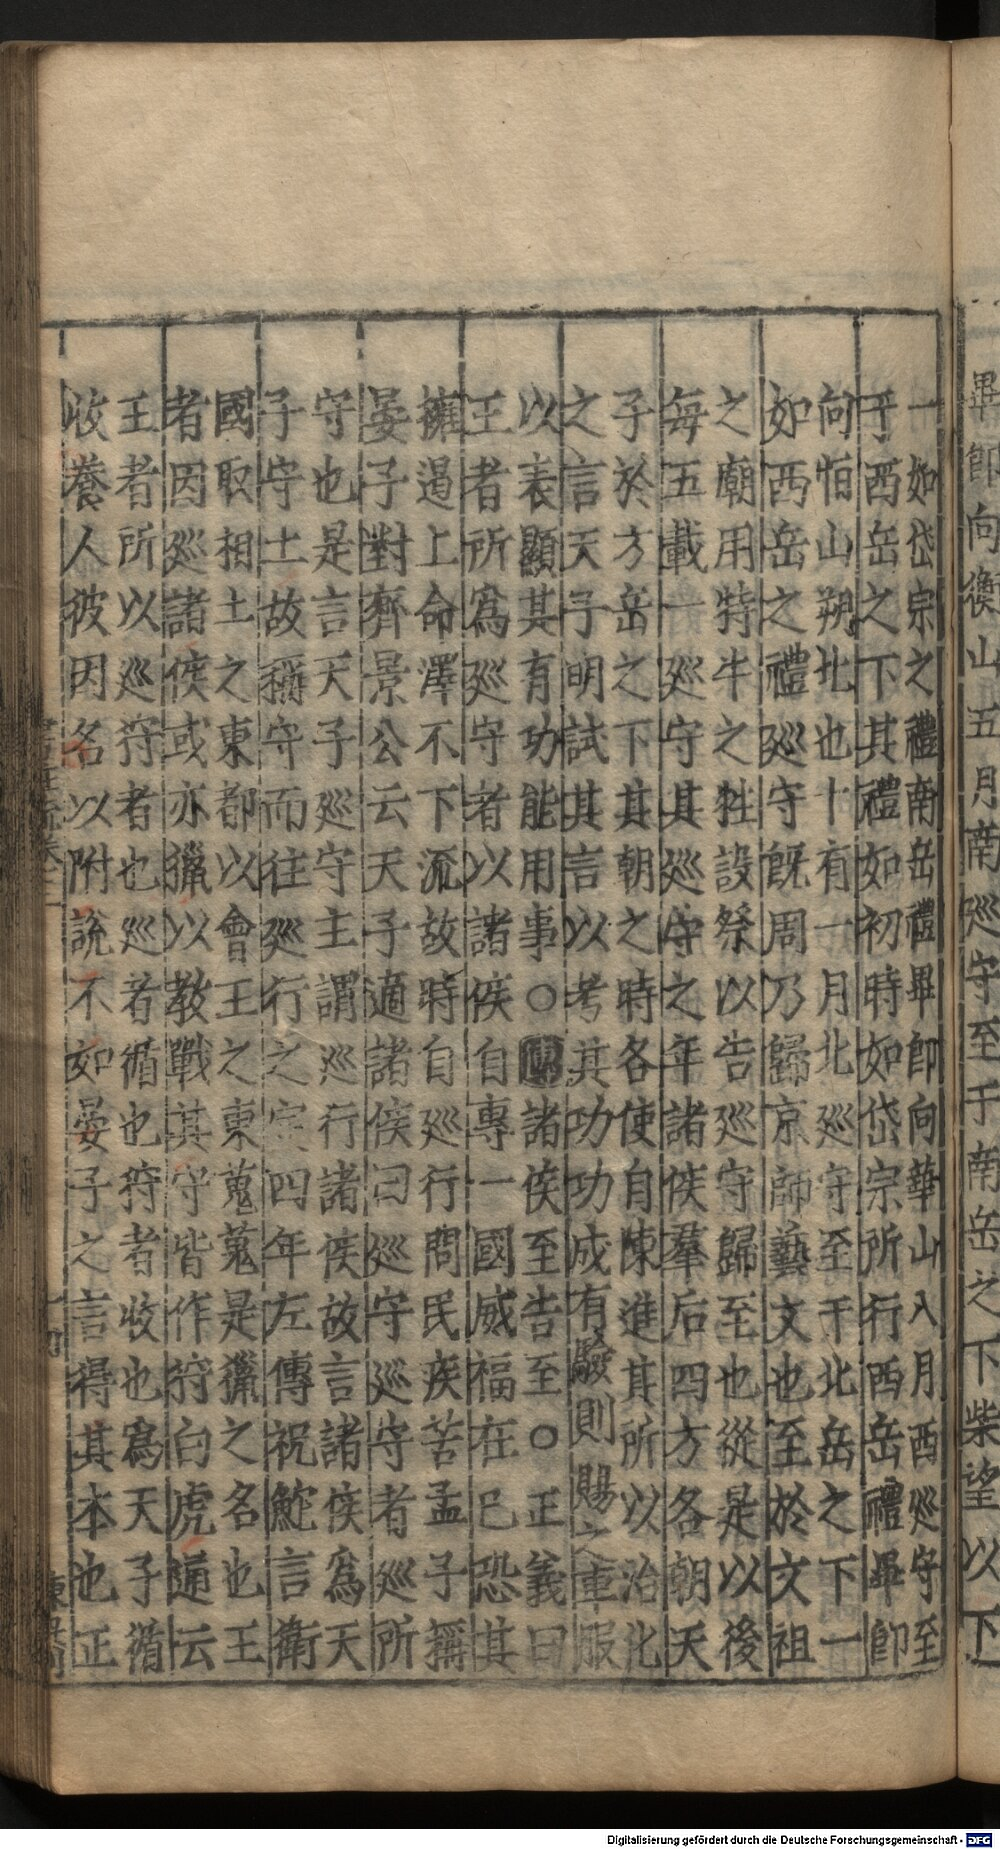 畢即向衡山五月南巡守至于南岳之下柴望以下
一如岱宗之禮南岳禮畢即向華山八月西巡守至
于西岳之下其禮如初時如岱宗所行西岳禮畢即
向恒山朔北也十有一月北巡守至于北岳之下一
如西岳之禮巡守既周乃歸京師藝文也至於文祖
之廟用特牛之牲設祭以告巡守歸至也從是以後
每五載一巡守其巡守之年諸侯羣后四方各朝天
子於方岳之下其朝之時各使自陳進其所以治化
之言天子明試其言以考其功功成有驗則賜之車服
以表顯其有功能用事○傳諸侯至告至○正義曰
王者所爲巡守者以諸侯自專一國威福在巳恐其
擁遏上命澤不下流故時自巡行問民疾苦孟子稱
晏子對齊景公云天子適諸侯曰巡守巡守者巡所
守也是言天子巡守主謂巡行諸侯故言諸侯爲天
子守土故稱守而往巡行之定四年左傳祝鮀言衛
國取相土之東都以會王之東蒐蒐是獵之名也王
者因巡諸侯或亦獵以教戰其守皆作狩白虎通云
王者所以巡狩者也巡者循也狩者收也爲天子循
收養人彼因名以附說不如晏子之言得其本也正
Digitalisierung gefördert durch die Deutsche Forschungsgemeinschaft - DFG